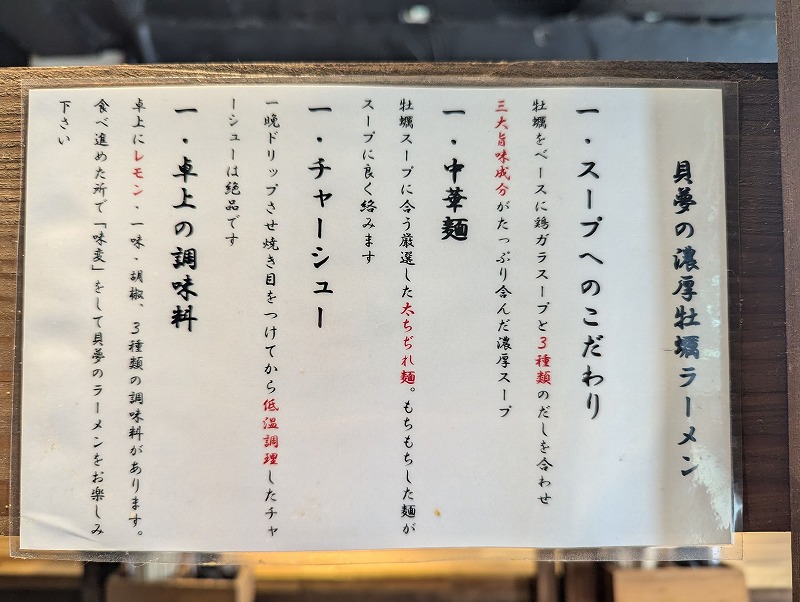 貝夢の濃厚牡蠣ラーメン
一・スープへのこだわり
牡蠣をベースに鶏ガラスープと3種類のだしを合わせ
三大旨味成分がたっぷり含んだ濃厚スープ
一・中華麺
牡蠣スープに合う厳選した太ちぢれ麺。もちもちした麺が
スープに良く絡みます
一・チャーシュー
一晩ドリップさせ焼き目をつけてから低温調理したチャ
ーシューは絶品です
一・卓上の調味料
卓上にレモン・一味・胡椒、3種類の調味料があります。
食べ進めた所で「味変」をして貝夢のラーメンをお楽しみ
下さい